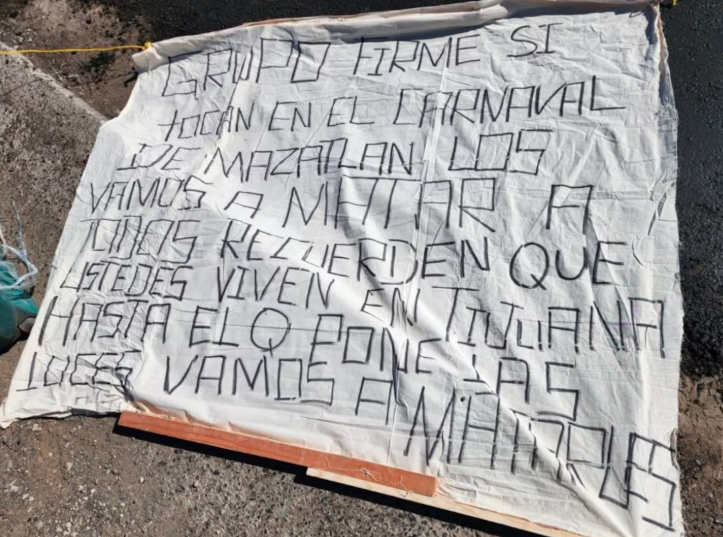 GRUPO FIRME SI
TOCAN EN EL CARNAVAL
DE MAZATLAN LOS
VAMOS A MATAR A
TODOS RECUERDEN QUE
USTEDES VIVEN EN TIJUANA
HASTA EL Q PONE LAS
LUCES VAMOS A MATARLES